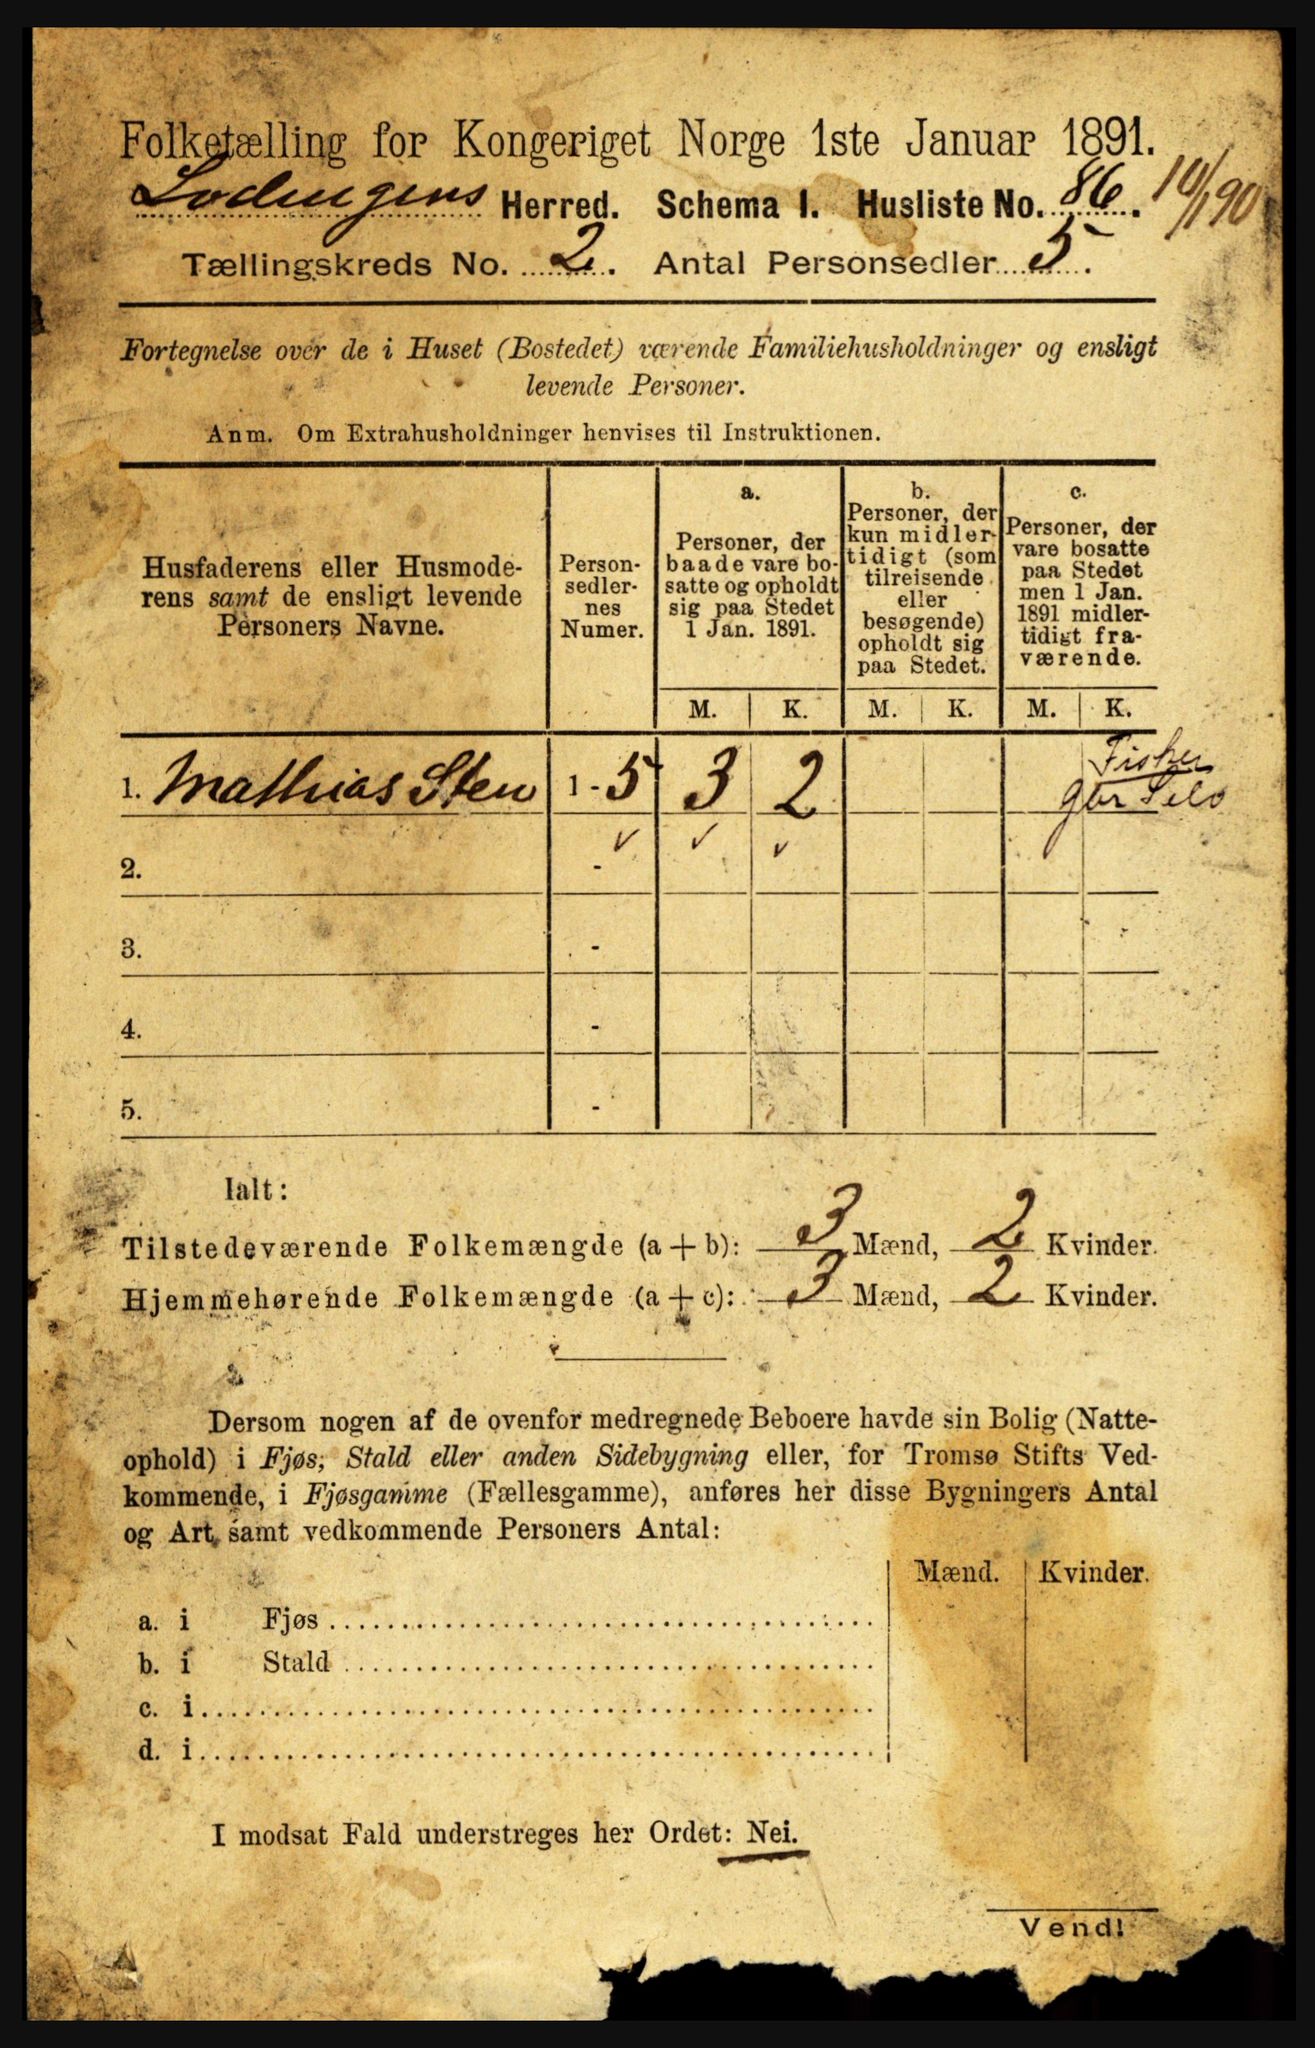 Folketælling for Kongeriget Norge 1ste Januar 1891.
Lodingens Herred. Schema I. Husliste No. 86.
Tællingskreds No. 2. Antal Personsedler 5.
Fortegnelse over de i Huset (Bostedet) værende Familiehusholdninger og ensligt
levende Personer.
Anm. Om Extrahusholdninger henvises til Instruktionen.
Husfaderens eller Husmode-
rens samt de ensligt levende
Personers Navne.
Person-
sedler-
nes
Numer.
a.
Personer, der
baade vare bo-
satte og opholdt
sig paa Stedet
1 Jan. 1891.
b.
Personer, der
kun midler-
tidigt (som
tilreisende
eller
besøgende)
opholdt sig
paa Stedet.
c.
Personer, der
vare bosatte
paa Stedet
men 1 Jan.
1891 midler-
tidigt fra-
værende.
M. K. M. K. M. K.
1. Mathias Sten 1 - 5 3 2 Fisker
2. -
3. -
4. -
5. -
Ialt:
Tilstedeværende Folkemængde (a + b): 3 Mænd, 2 Kvinder.
Hjemmehørende Folkemængde (a + c): 3 Mænd, 2 Kvinder.
Dersom nogen af de ovenfor medregnede Beboere havde sin Bolig (Natte-
ophold) i Fjøs, Stald eller anden Sidebygning eller, for Tromsø Stifts Ved-
kommende, i Fjøsgamme (Fællesgamme), anføres her disse Bygningers Antal
og Art samt vedkommende Personers Antal:
Mænd. Kvinder.
a. i Fjøs
b. i Stald
c. i
d. i
I modsat Fald understreges her Ordet: Nei.
Vend!